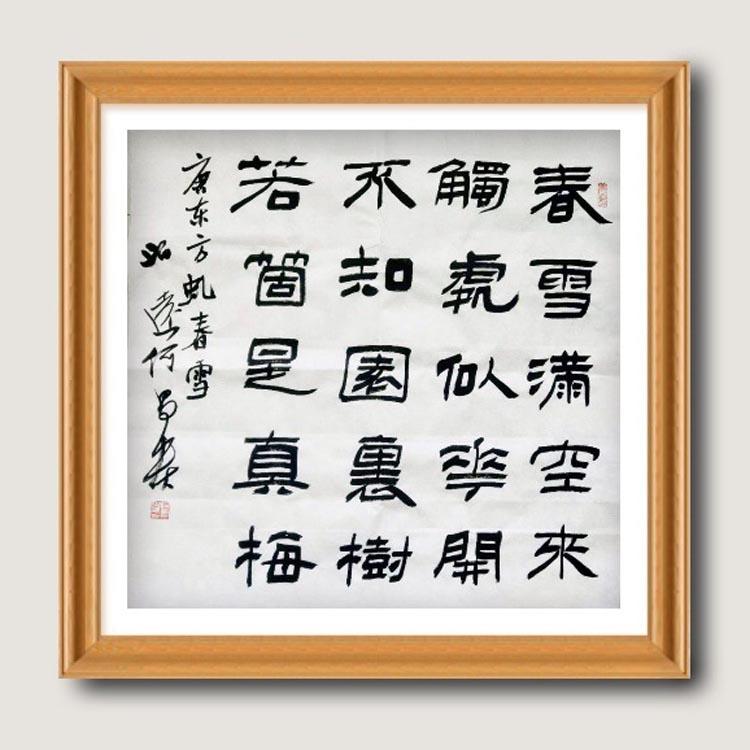 春雪滿空來
觸處似花開
不知園裏樹
若箇是真梅
唐东方虬春雪